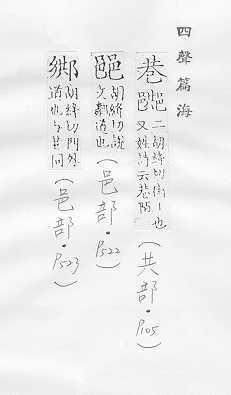 四聲篇海
巷 𨞠 二胡絳切街丨也
又姓詩云巷陌
(共部·P105)
胡絳切說
文鄰道也
(邑部·P522)
鄉 胡絳切門外
道也与巷同
(邑部·P523)